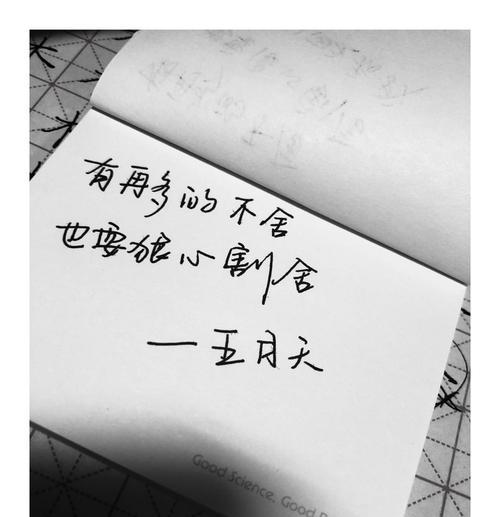 有再多的不舍
也要狠心割舍
——五月天
Good Science. Good